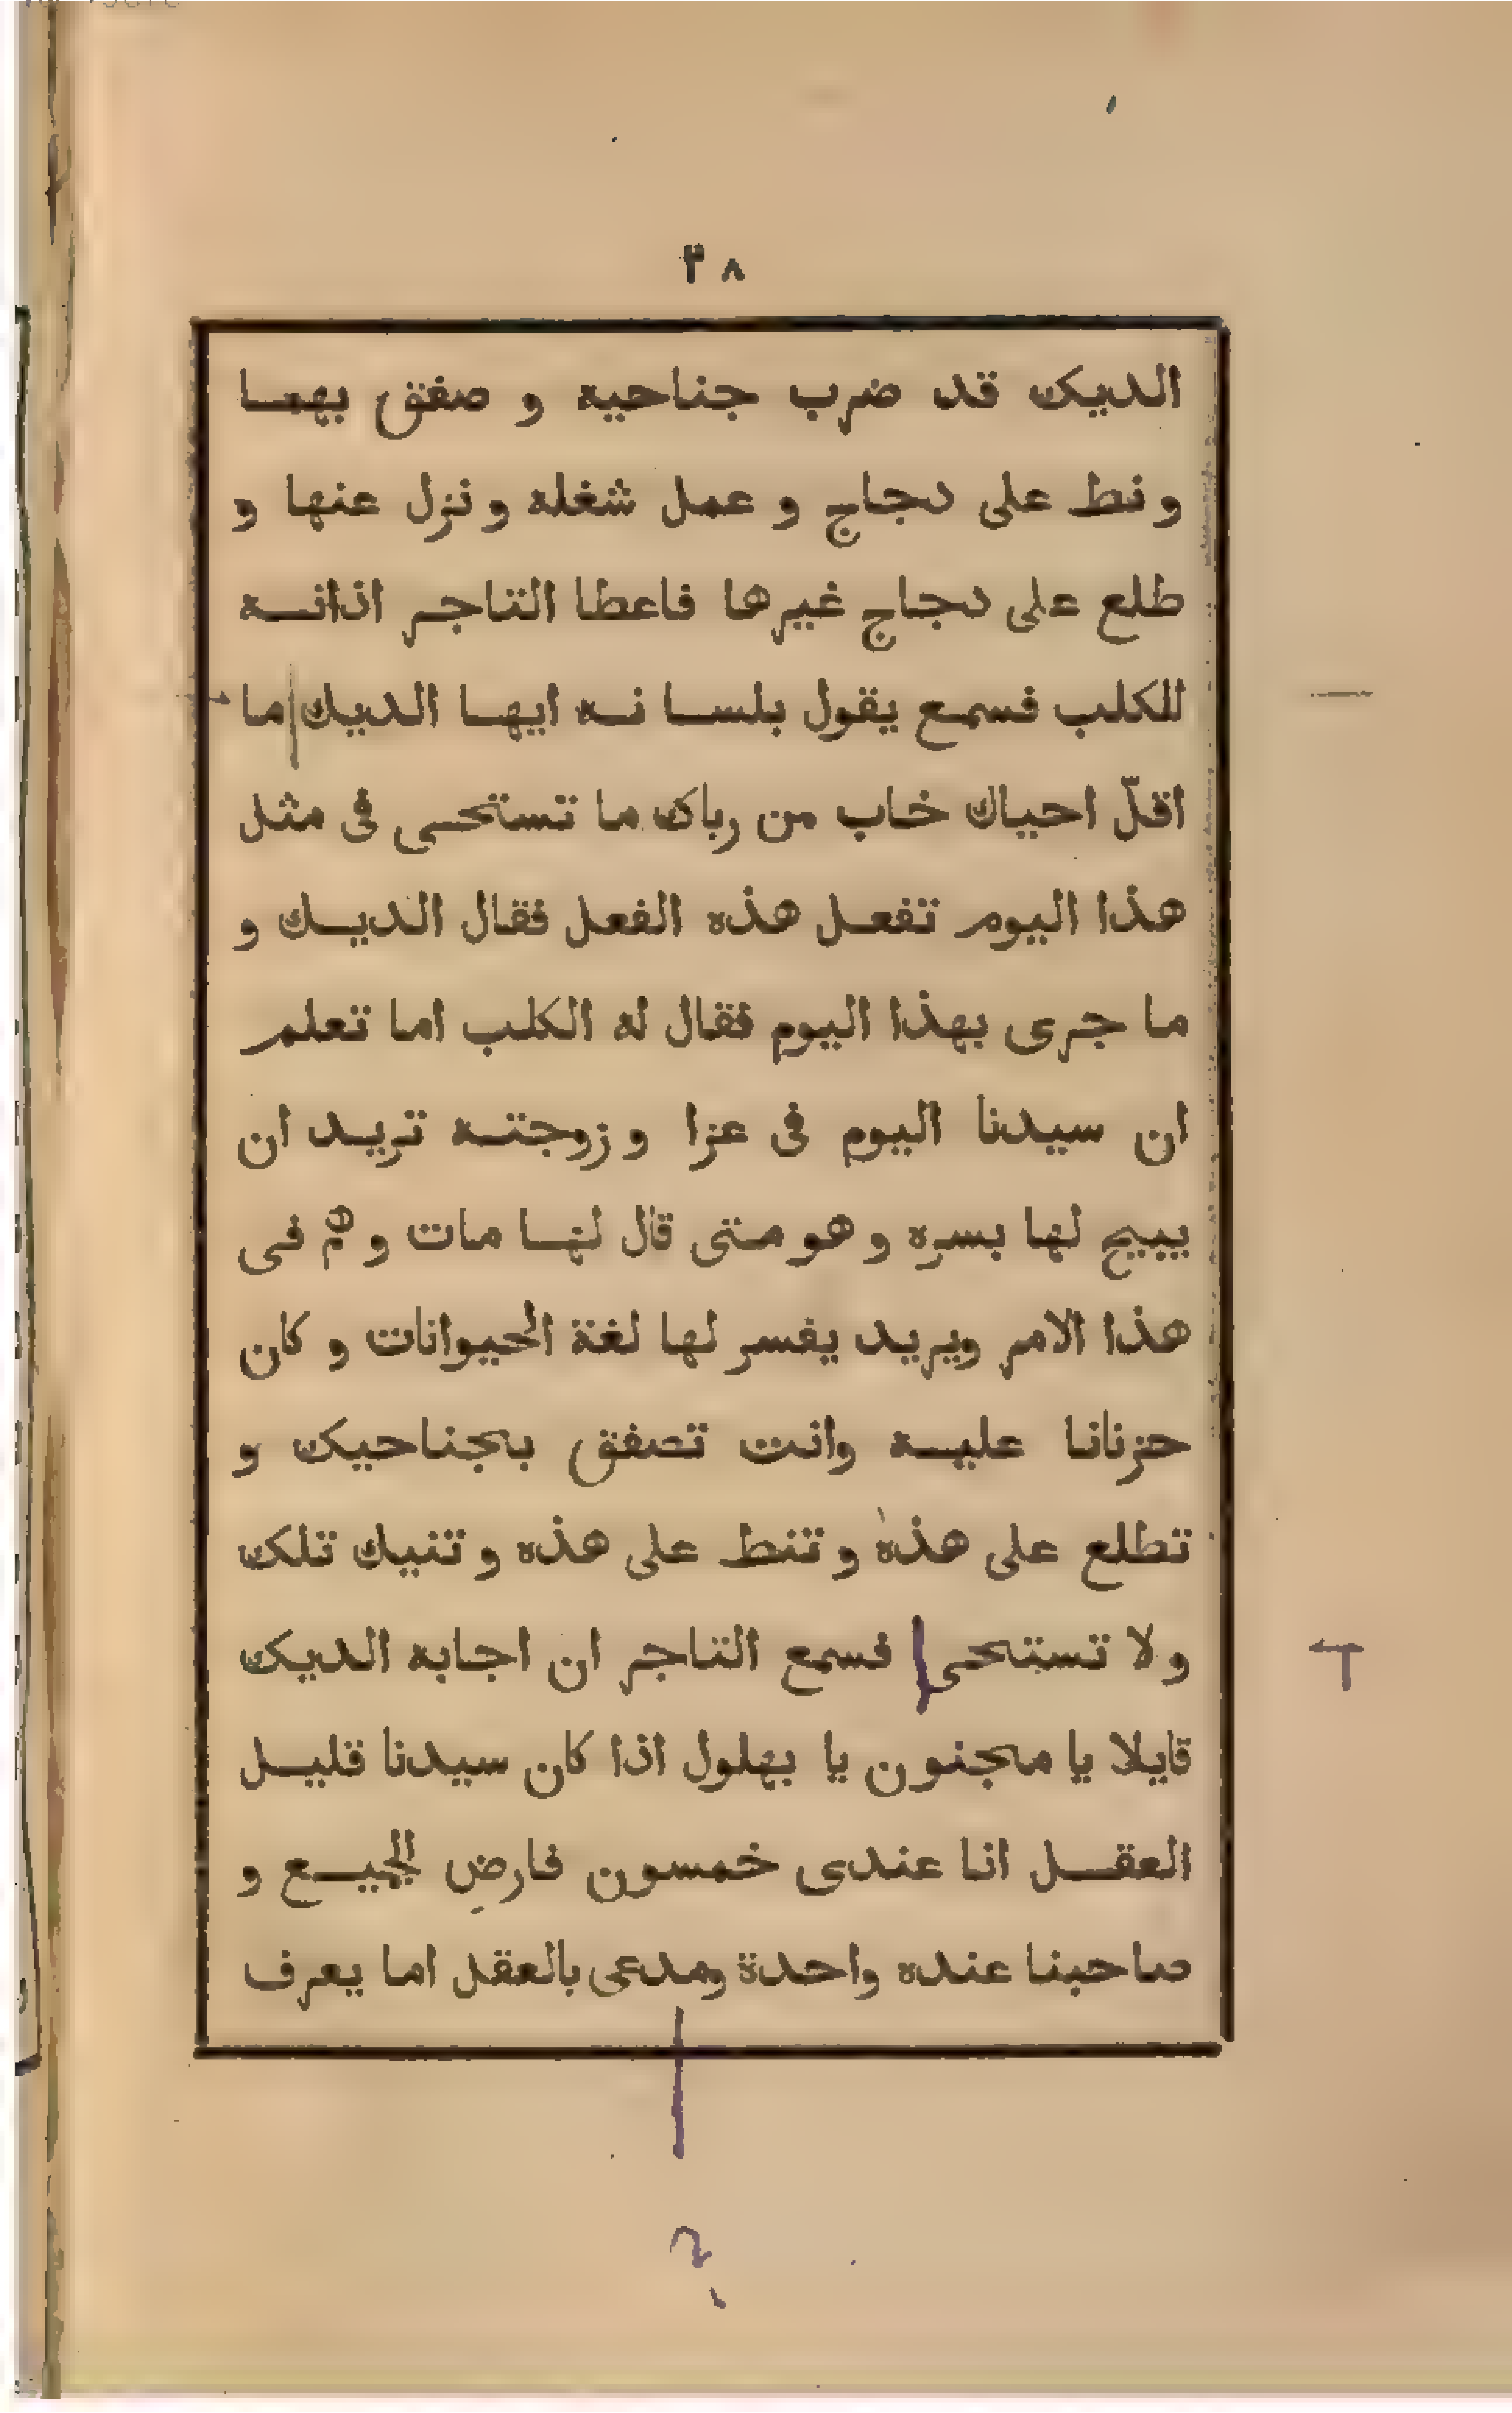 ٣٨
الديك قد ضرب جناحيه و صفق بهما
و نط على دجاج و عمل شغله و نزل عنها و
طلع على دجاج غيرها فاعطا التاجر اذانه
للكلب فسمع يقول بلسا نه ايها الديك ما
اقلّ احياك خاب من رباك ما تستحى فى مثل
هذا اليوم تفعل هذه الفعل فقال الديك و
ما جرى بهذا اليوم فقال له الكلب اما تعلم
ان سيدنا اليوم فى عزا و زوجته تريد ان
يبيح لها بسره و هو متى قال لها مات و هم فى
هذا الامر ويريد يفسر لها لغة الحيوانات و كان
حزنانا عليه وانت تصفق بجناحيك و
تطلع على هذه و تنط على هذه و تنيك تلك
و لا تستحى فسمع التاجر ان اجابه الديك
قايلا يا مجنون يا بهلول اذا كان سيدنا قليل
العقل انا عندى خمسون فارضِ الجميع و
صاحبنا عنده واحدة ومدعى بالعقل اما يعرف